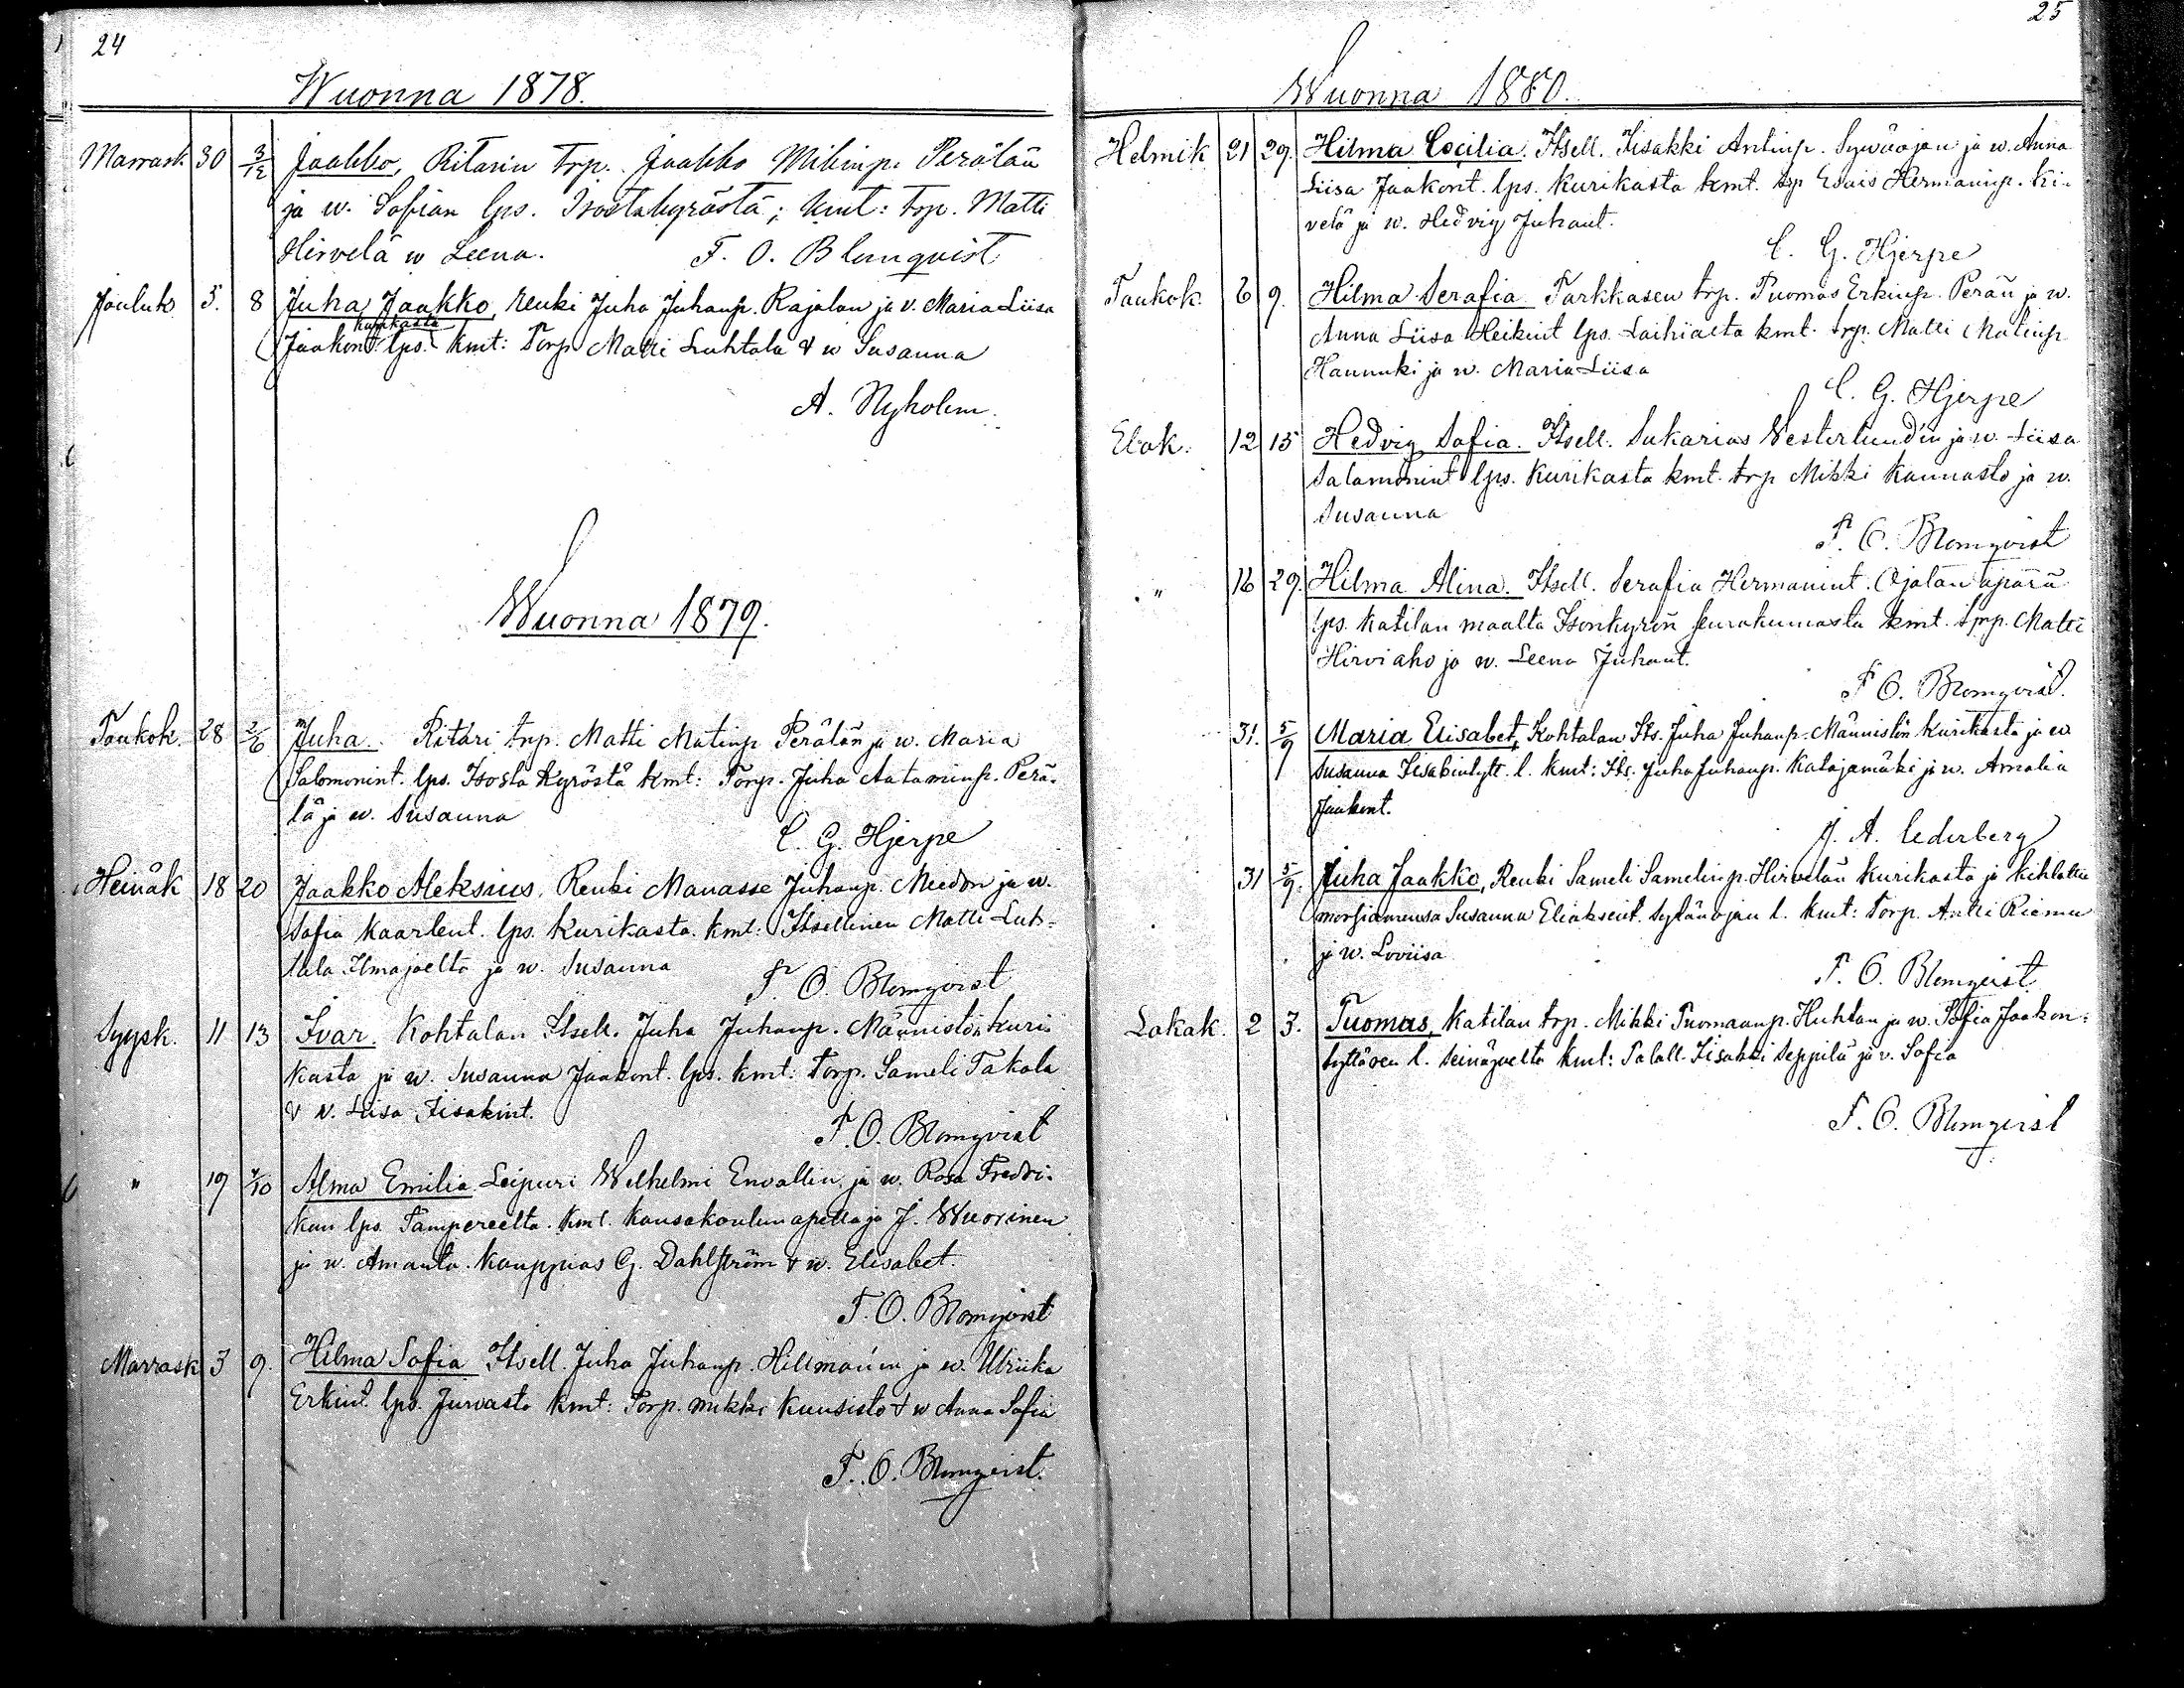 24
Wuonna 1878.
Marrask. 30 3/12 Jaakko, Ritarin Trp. Jaakko Mikinp. Perälän
ja w. Sofian lps. Isostakyröstä; kmt: Trp. Matti
Hirvelä w Leena. F. O. Blomqvist
Jouluk. 5. 8 Juha Jaakko, renki Juha Juhanp. Rajalan ja v. Maria Liisa
kurikasta
Jaakont. lps. kmt: Torp. Matti Luhtala & w Susanna
A. Nyholm.
Wuonna 1879.
Toukok. 28 2/6 Juha. Ritari trp. Matti Matinp Perälän ja w. Maria
Salomonint. lps. Isosta Kyröstä kmt: Torp. Juha Aataminp. Perä-
lä ja w. Susanna
C. G. Hjerpe
Heinäk 18 20 Jaakko Aleksius, Renki Manasse Juhanp. Miedon ja w.
Sofia Kaarlent. lps. Kurikasta. kmt: Itsellinen Matti Luh-
tala Ilmajoelta ja w. Susanna
F. O. Blomqvist
Syysk. 11 13 Ivar. Kohtalan Itsell. Juha Juhanp. Männistön kuri-
kasta ja w. Susanna Jaakont. lps. kmt: Torp. Sameli Takala
& w. Liisa Iisakint.
F. O. Blomqvist
" 19 1/10 Alma Emilia Leipuri Wilhelmi Envallin ja w. Rosa Fredri-
kan lps. Tampereelta. kmt. Kansakoulun opettaja J. Wuorinen
ja w. Amanta. Kauppias G. Dahlström & w. Elisabet.
F. O. Blomqvist
Marrask 3 9. Hilma Sofia Itsell. Juha Juhanp. Hillman'in ja w. Ulriika
Erkint. lps. Jurvasta kmt: Torp. Mikki Kuusisto & w Anna Sofia
F. O. Blomqvist.
25
Wuonna 1880.
Helmik 21 29. Hilma Cecilia. Itsell. Iisakki Antinp. Sywäojan ja w. Anna
Liisa Jaakont. lps. Kurikasta kmt. trp Esais Hermaninp. Ki-
velä ja w. Hedvig Juhant.
C. G. Hjerpe
Toukok. 6 9. Hilma Serafia Tarkkasen trp. Tuomas Erkinp. Perän ja w.
Anna Liisa Heikint lps. Laihialta kmt. trp. Matti Matinp
Hannuki ja w. Maria Liisa
C. G. Hjerpe
Elok. 12 15 Hedvig Sofia. Itsell. Sakarias Vesterlund'in ja w. Liisa
Salamonint lps. Kurikasta kmt. trp Mikki Kannasto ja w.
Susanna
F. O. Blomqvist
" 16 29. Hilma Alina. Itsell. Serafia Hermanint. Ojalan äpärä
lps. Katilan maalta Isonkyrön seurakunnasta kmt. trp. Matti
Hirviaho ja w. Leena Juhant.
F. O. Blomqvist.
31. 5/9 Maria Elisabet, Kohtalan Its. Juha Juhanp. Männistön Kurikasta ja w
Susanna Iisakintytt. l. kmt: Its. Juha Juhanp. Katajamäki ja w. Amalia
Jaakont.
J. A. Cederberg
31 5/9. Juha Jaakko, Renki Sameli Samelinp. Hirvelän Kurikasta ja kihlattu
morsiamensa Susanna Eliaksent. Sytänojan l. kmt: Torp. Antti Riemu
ja w. Loviisa
F. O. Blomqvist.
Lokak. 2 3. Tuomas, Katilan trp. Mikki Tuomaanp. Huhtan ja w. Sofia Jaakon-
tyttären l. Seinäjoelta kmt: Taloll. Iisakki Seppilä ja v. Sofia
F. O. Blomqvist